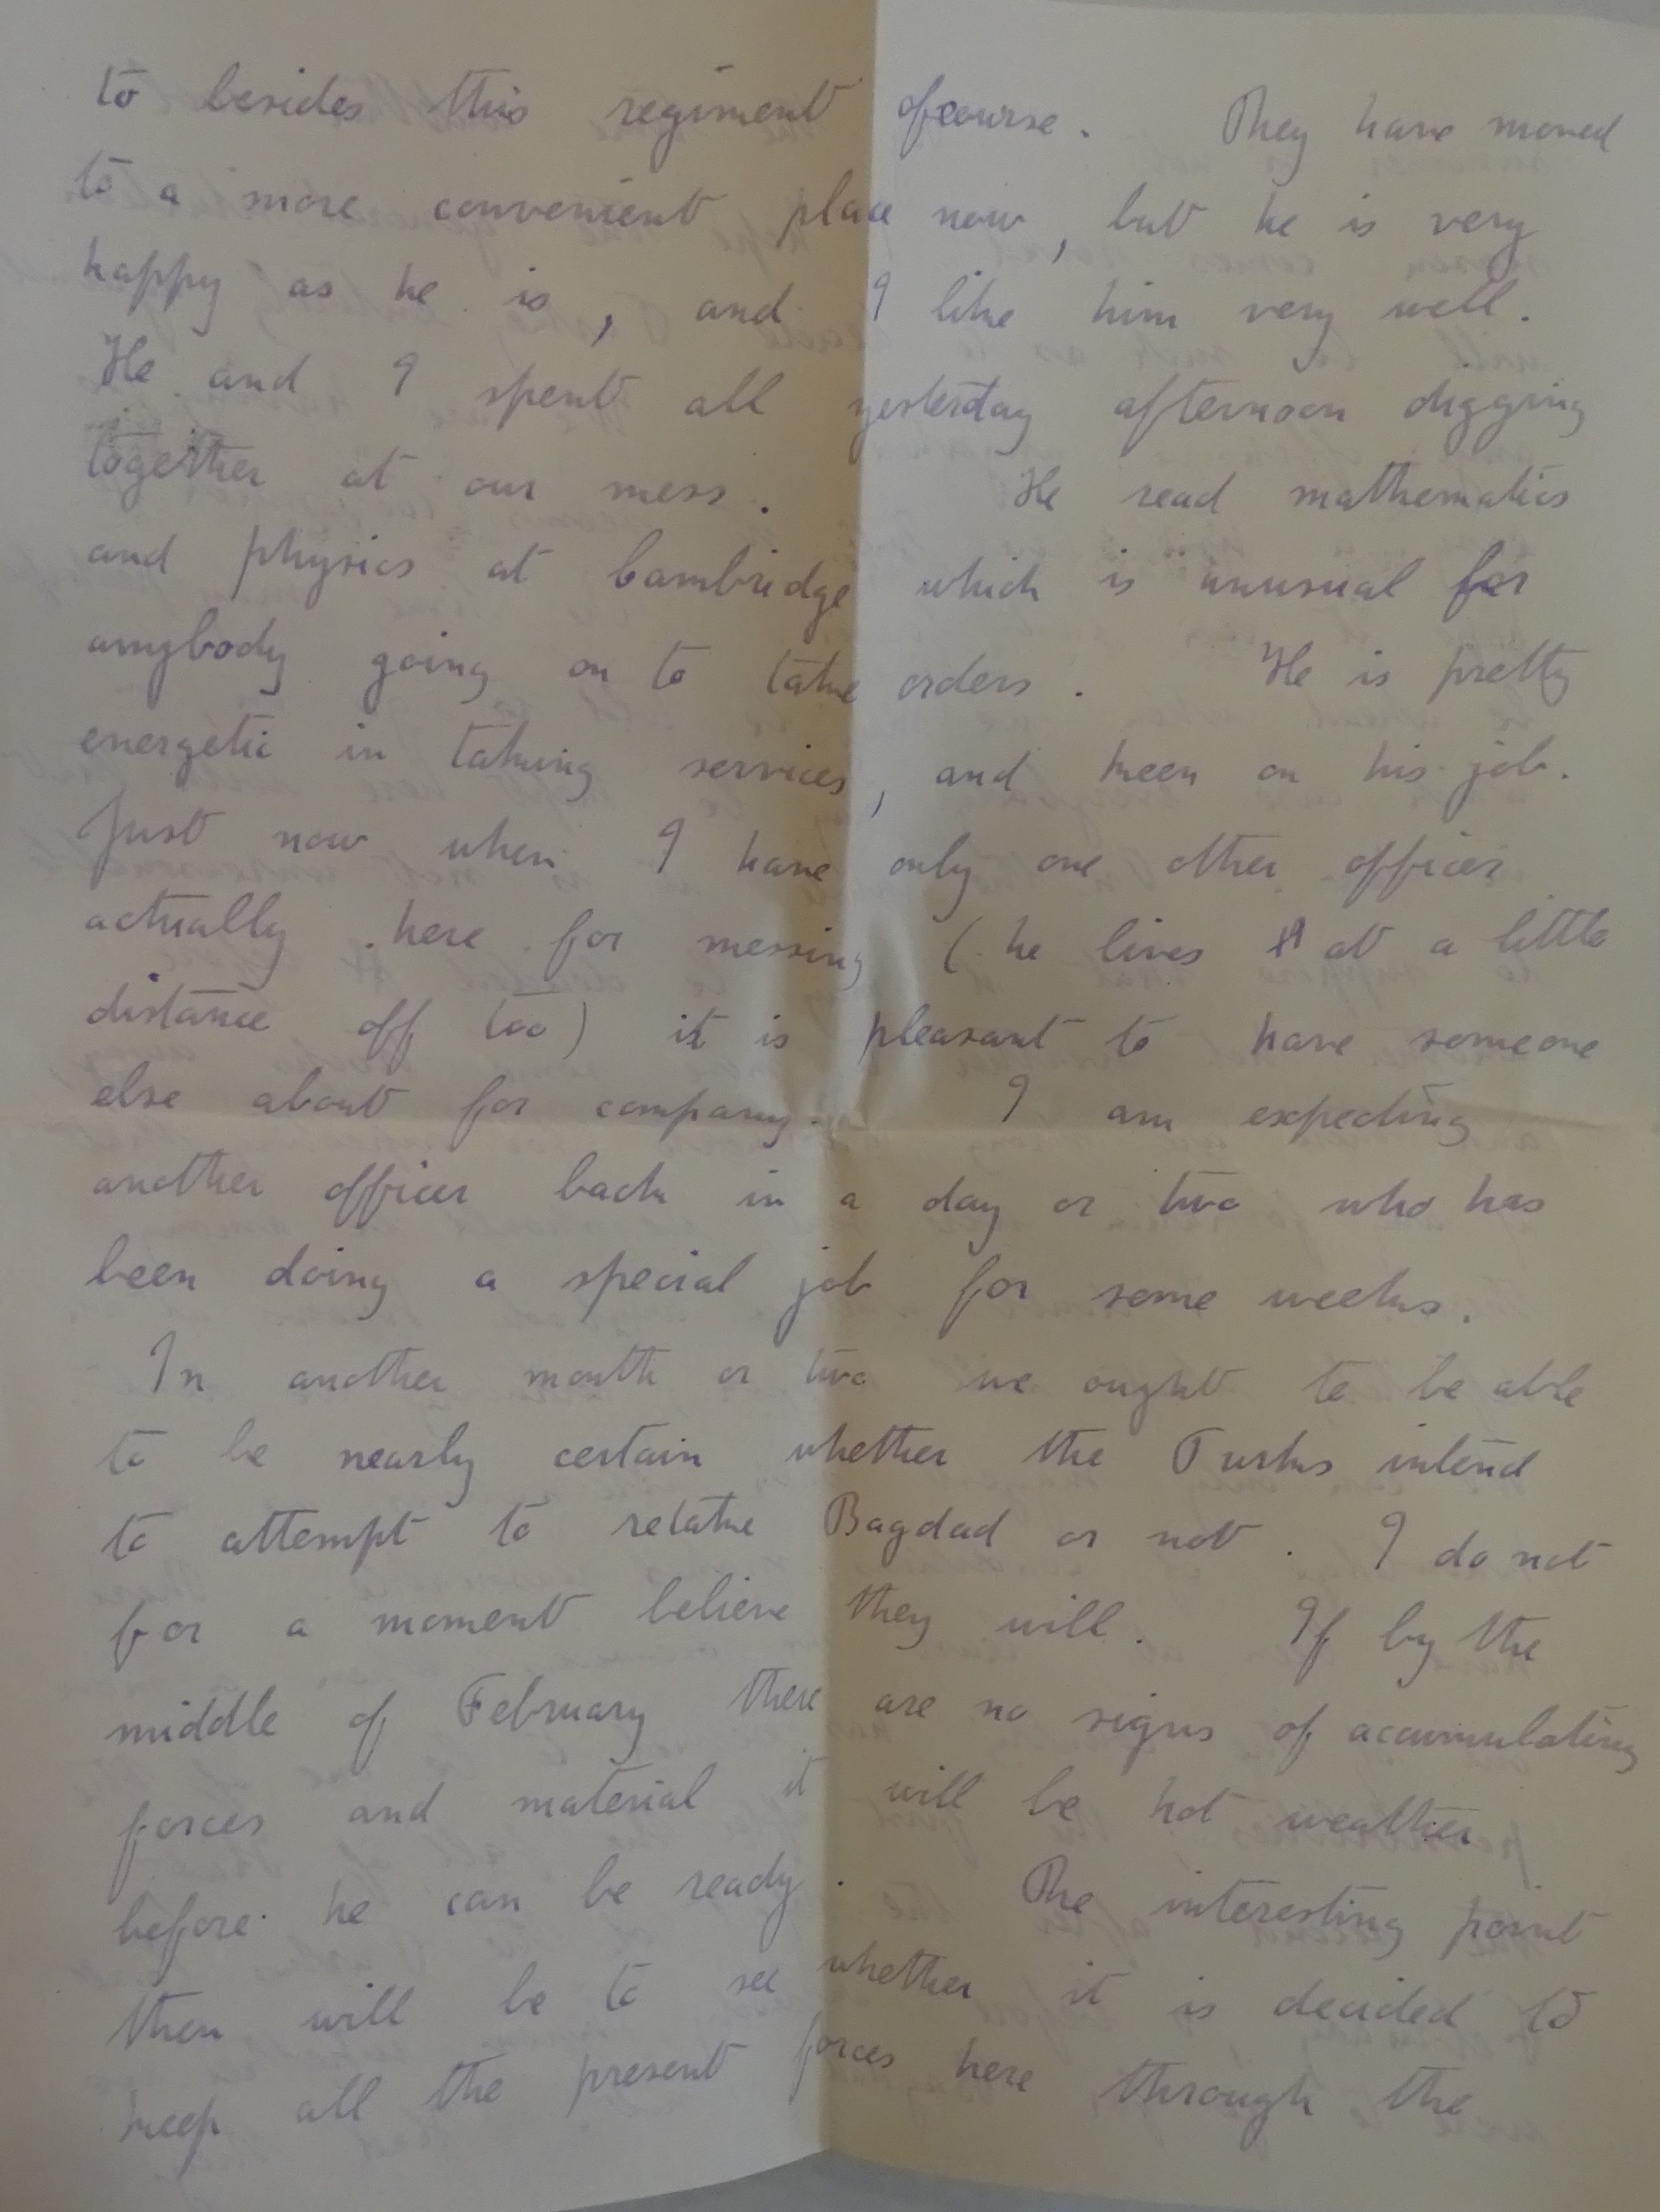 to besides this regiment ofcourse. They have moved
to a more convenient place now, but he is very
happy as he is, and I like him very well.
He and I spent all yesterday afternoon digging
together at our mess. He read mathematics
and physics at Cambridge which is unusual for
anybody going on to take orders. He is pretty
energetic in taking services, and keen on his job.
Just now when I have only one other officer
actually here for messing (he lives at a little
distance off too) it is pleasant to have someone
else about for company. I am expecting
another officer back in a day or two who has
been doing a special job for some weeks.
In another month or two we ought to be able
to be nearly certain whether the Turks intend
to attempt to retake Bagdad or not. I do not
for a moment believe they will. If by the
middle of February there are no signs of accumulating
forces and material it will be hot weather
before he can be ready. The interesting point
then will be to see whether it is decided to
keep all the present forces here through the